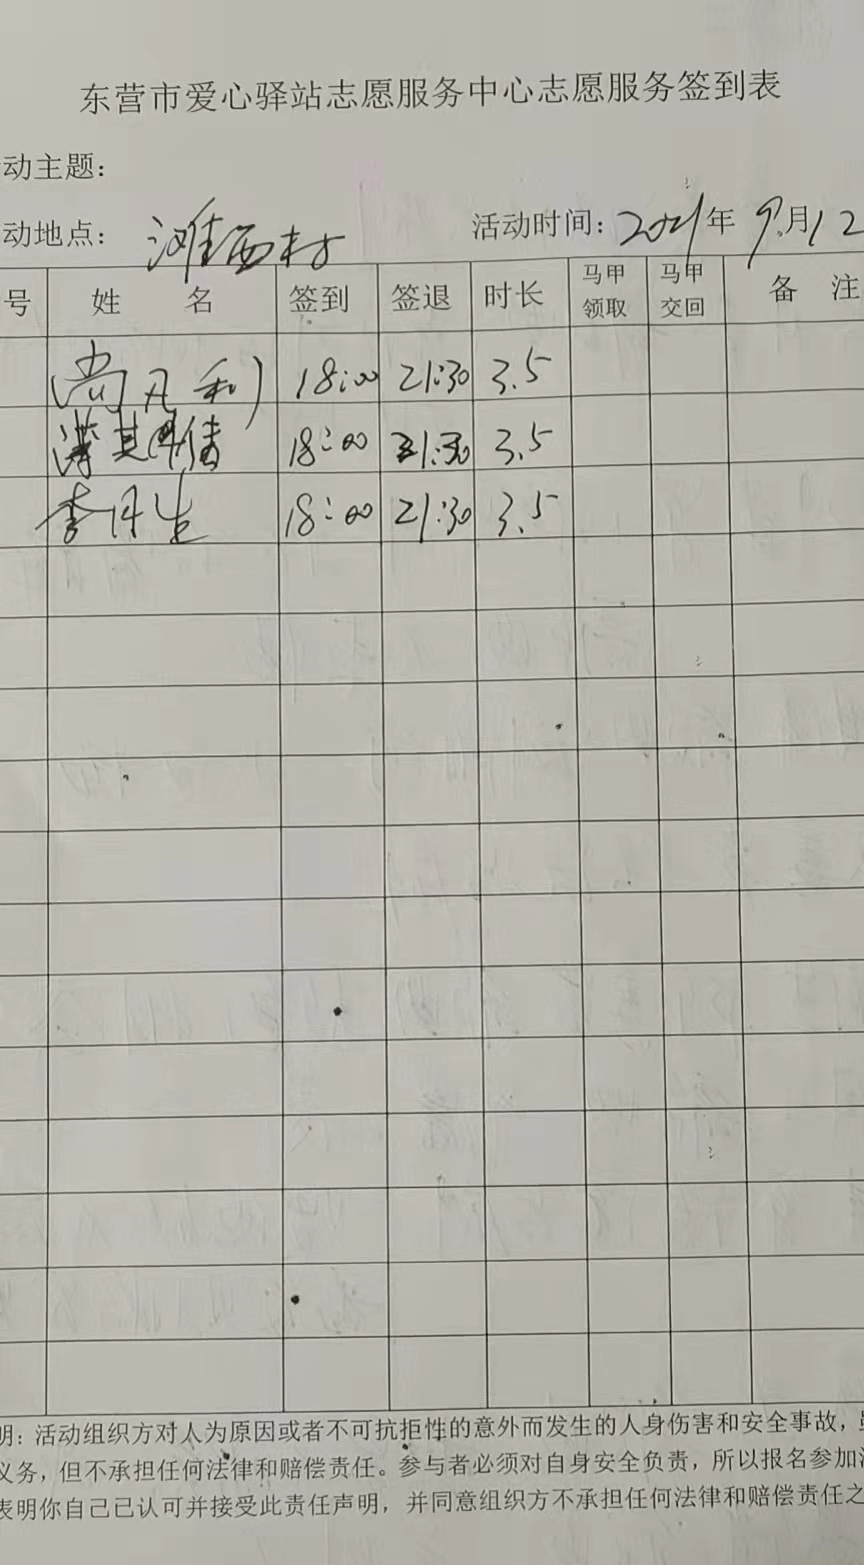 东营市爱心驿站志愿服务中心志愿服务签到表
动主题：
动地点： 滩西村 活动时间：2021年 9月12
号 姓 名 签到 签退 时长 马甲领取 马甲交回 备 注
尚凡利 18:00 21:30 3.5
18:00 21:30 3.5
李丹生 18:00 21:30 3.5
明：活动组织方对人为原因或者不可抗拒性的意外而发生的人身伤害和安全事故，
义务，但不承担任何法律和赔偿责任。参与者必须对自身安全负责，所以报名参加
表明你自己已认可并接受此责任声明，并同意组织方不承担任何法律和赔偿责任之